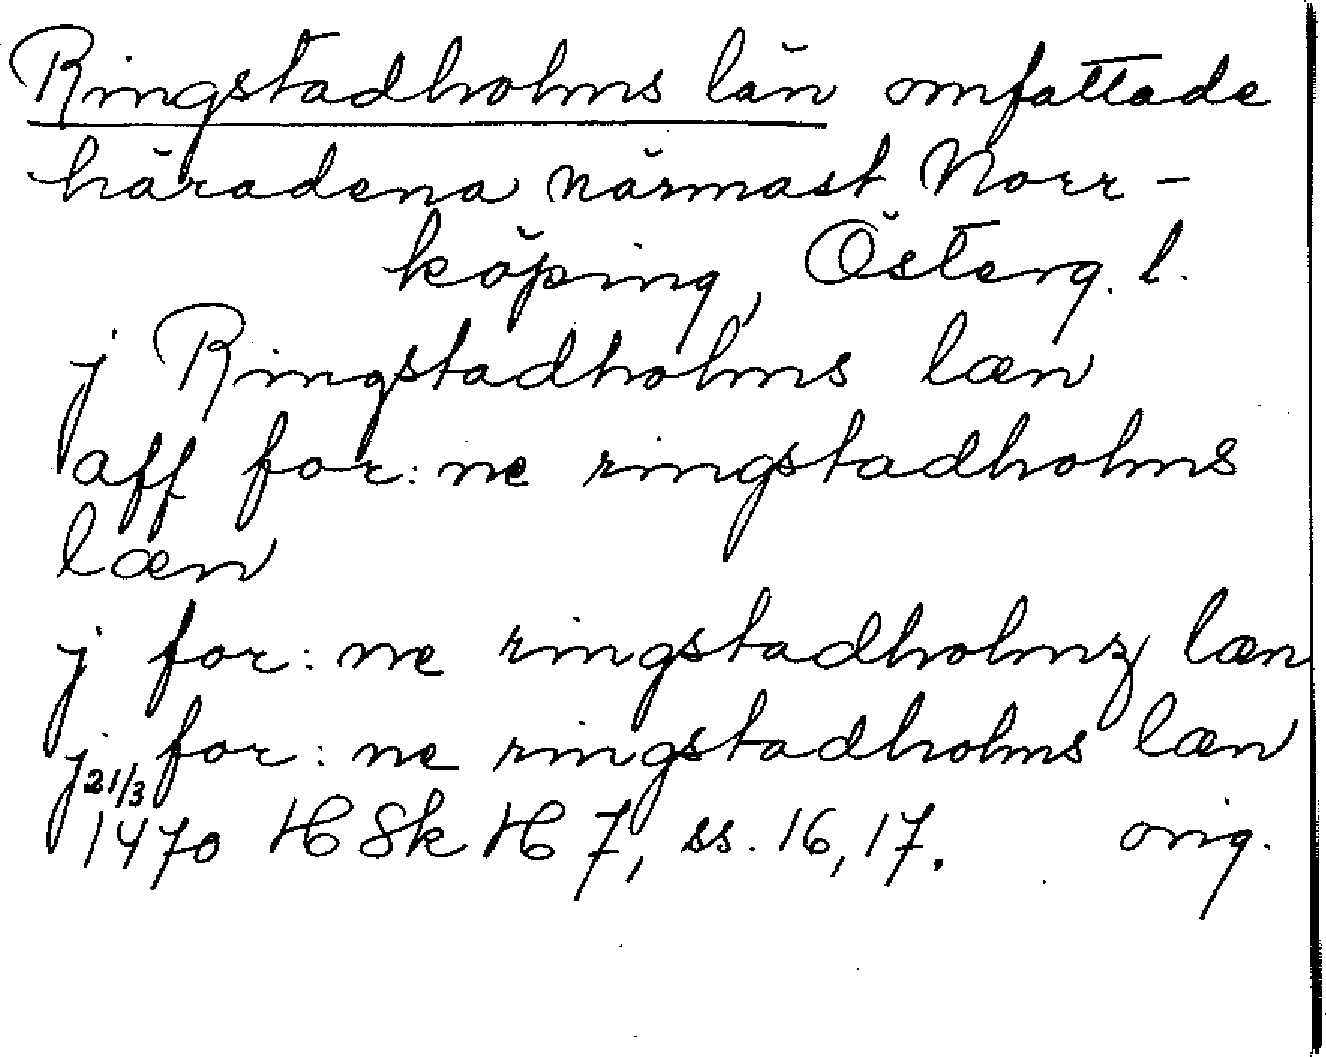 Ringstadholms län omfattade
häradena närmast Norr-
köping, Österg. l.
j Ringstadholms læn
aff for:ne ringstadholms
læn
j for:ne ringstadholmz læn
j for:ne ringstadholms læn
21/3
1470 HSkH 7, ss. 16, 17. orig.